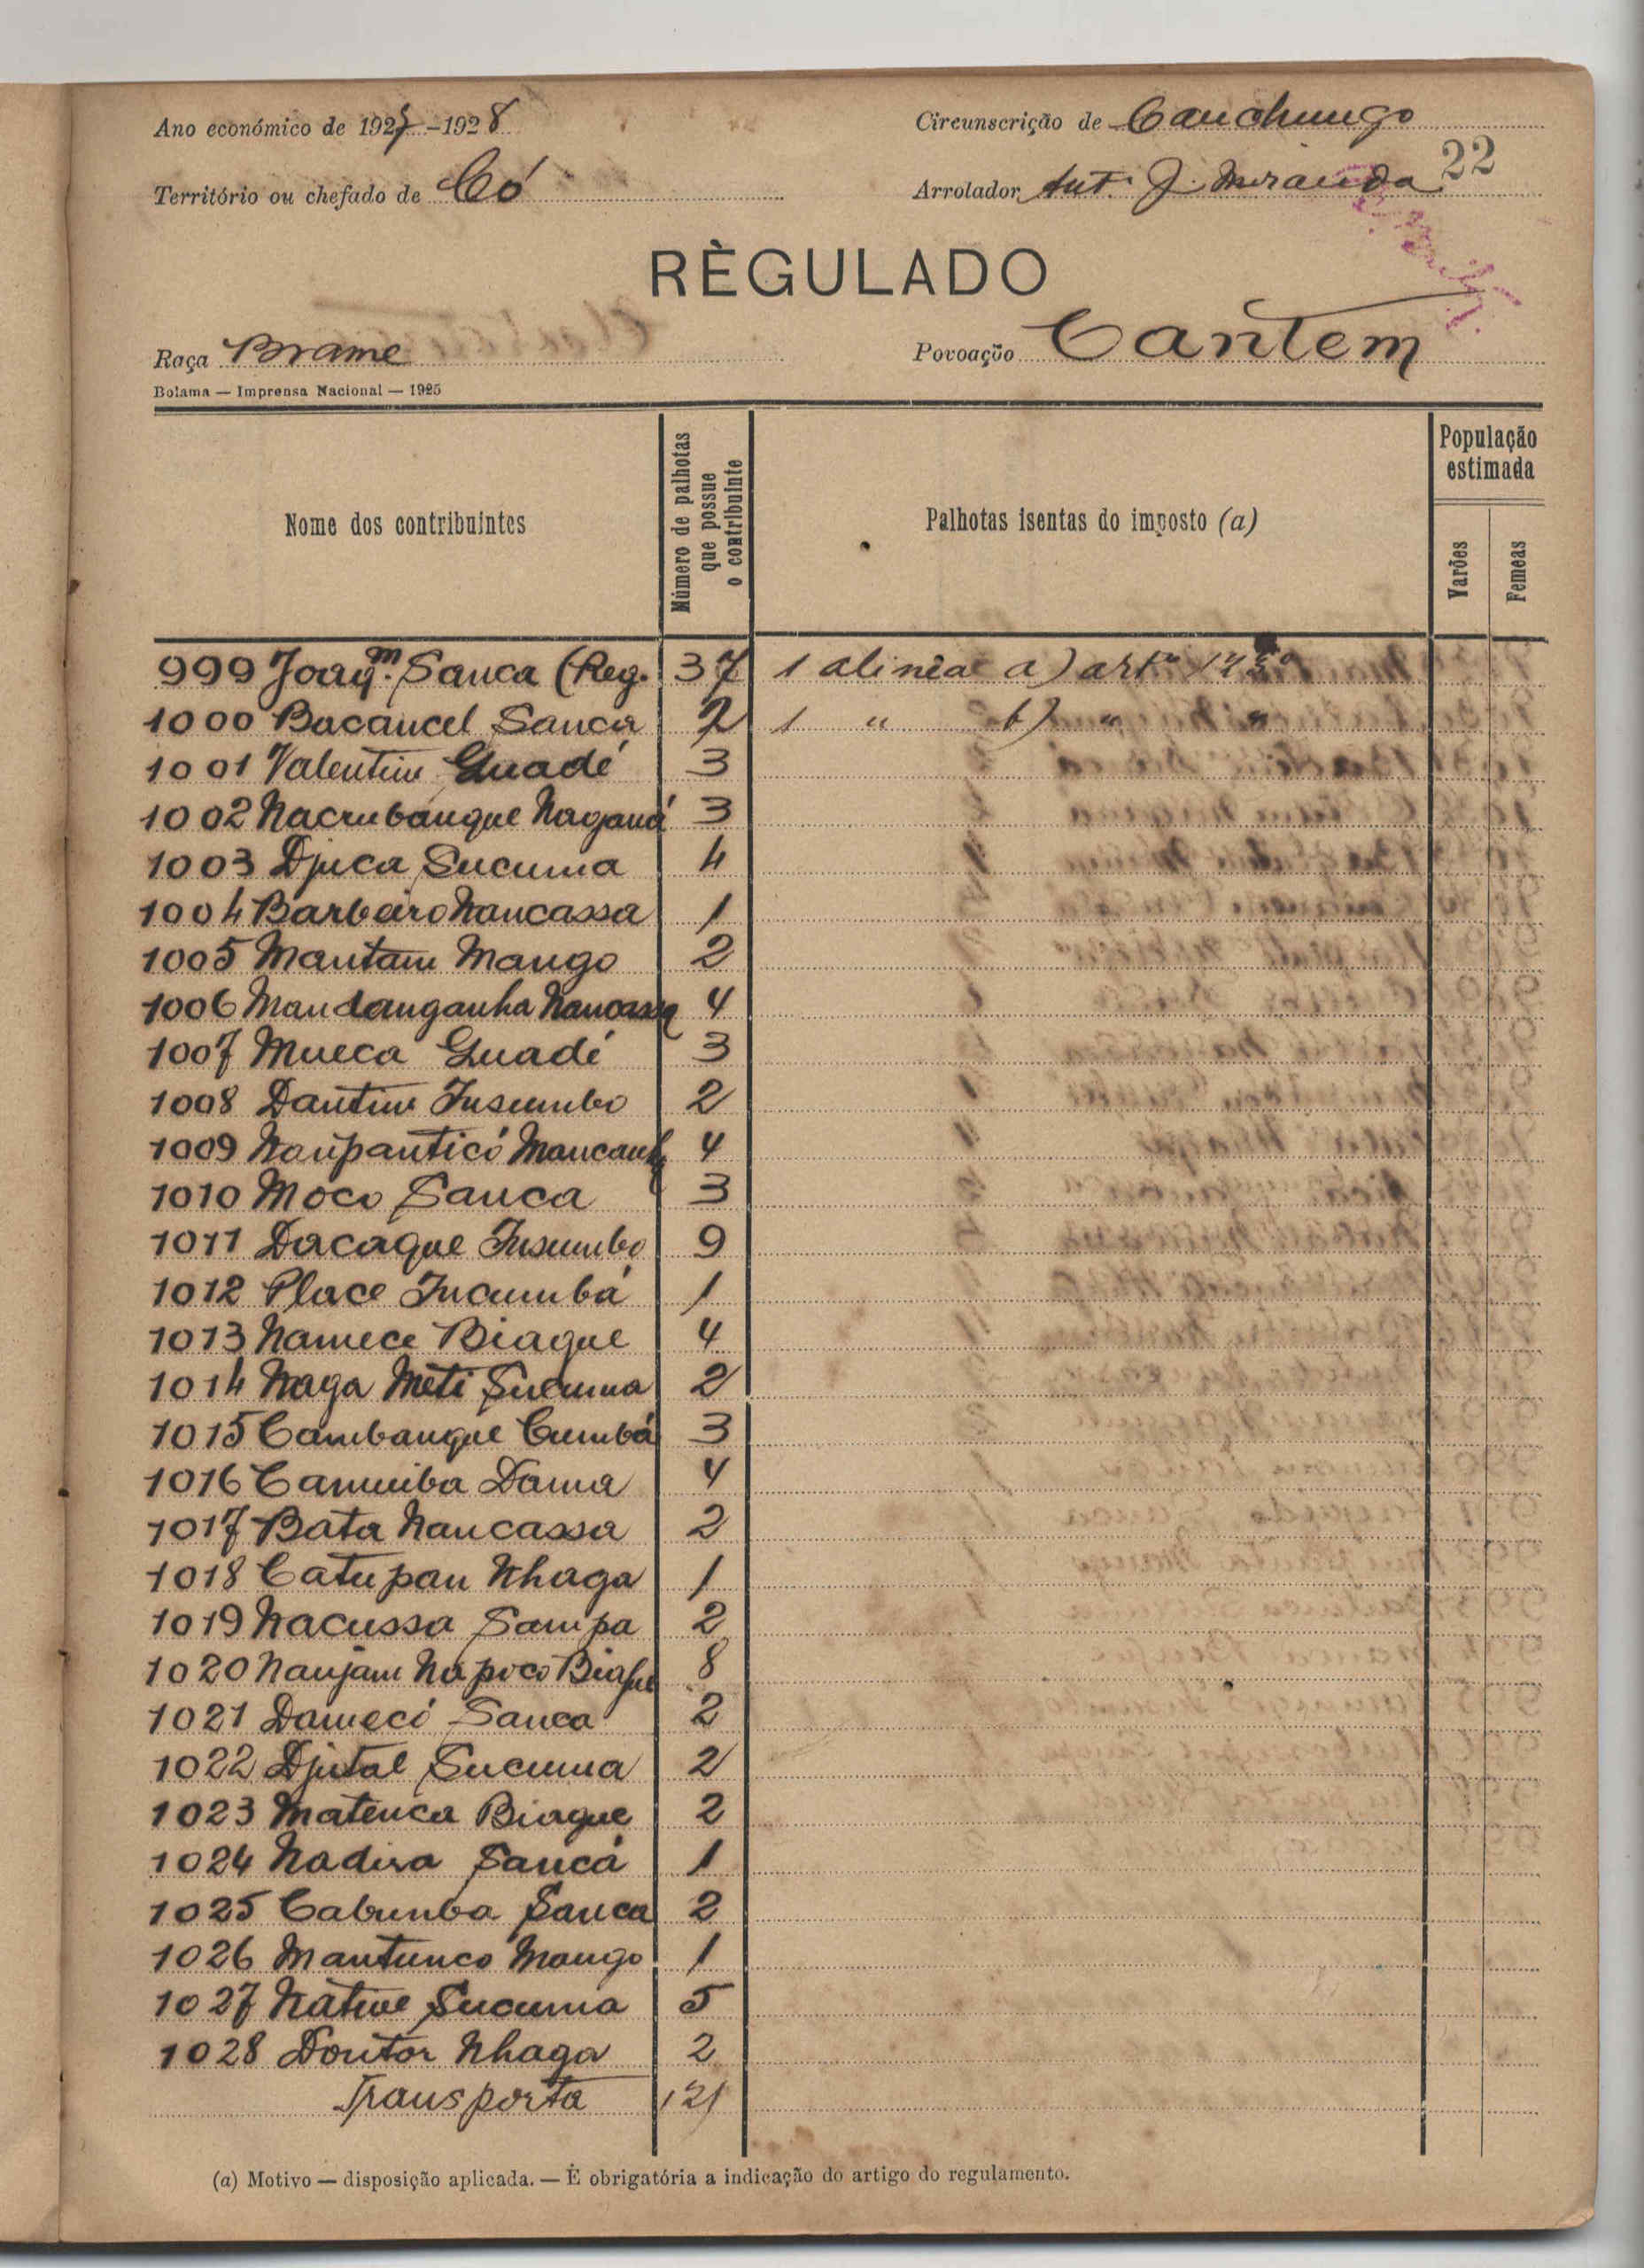 Ano económico de 1927-1928
Circunscrição de Canchungo
22
Território ou chefado de Có
Arrolador Ant. J. Miranda
RÈGULADO
Raça Brame
Povoação Cantem
Bolama — Imprensa Nacional — 1925
Nome dos contribuintes
Número de palhotas que possue o contribuinte
Palhotas isentas do imposto (a)
População estimada
Varões
Femeas
999 Joaqm. Sanca (Reg. 37 1 alinêa a) artº
1000 Bacancel Sanca 2 1 " b) " "
1001 Valentim Guadé 3
1002 Nacrubanque Naganá 3
1003 Djuca Sucuma 4
1004 Barbeiro Nancassa 1
1005 Mantam Mango 2
1006 Mandanganha Nancassa 4
1007 Mueca Guadé 3
1008 Dantim Insumbo 2
1009 Naupanticó 4
1010 Moco Sanca 3
1011 Dacaque Insumbo 9
1012 Place Incumbá 1
1013 Namece Biaque 4
1014 Naga Meti Sucuma 2
1015 Cambanque Cumbá 3
1016 Camuiba Dama 4
1017 Bata Nancassa 2
1018 Catupan Nhaga 1
1019 Nacussa Sampa 2
1020 Nanjam Napoco Biaque 8
1021 Damecó Sanca 2
1022 Djutal Sucuma 2
1023 Matenca Biaque 2
1024 Nadira Sancá 1
1025 Cabumba Sanca 2
1026 Mantunco Mango 1
1027 Native Sucuma 5
1028 Doutor Nhaga 2
Transporta 121
(a) Motivo — disposição aplicada. — É obrigatória a indicação do artigo do regulamento.